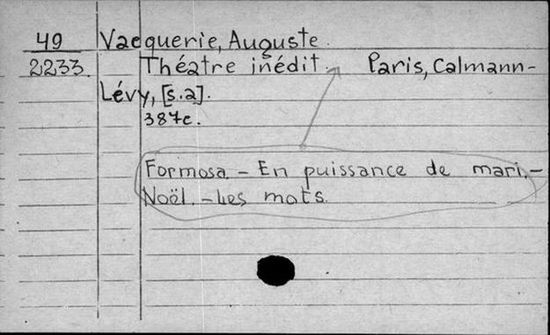 49 Vacquerie, Auguste.
2233 Théâtre inédit. Paris, Calmann-
Lévy, [s.a].
387c.
Formosa. - En puissance de mari. -
Noël. - Les mots.